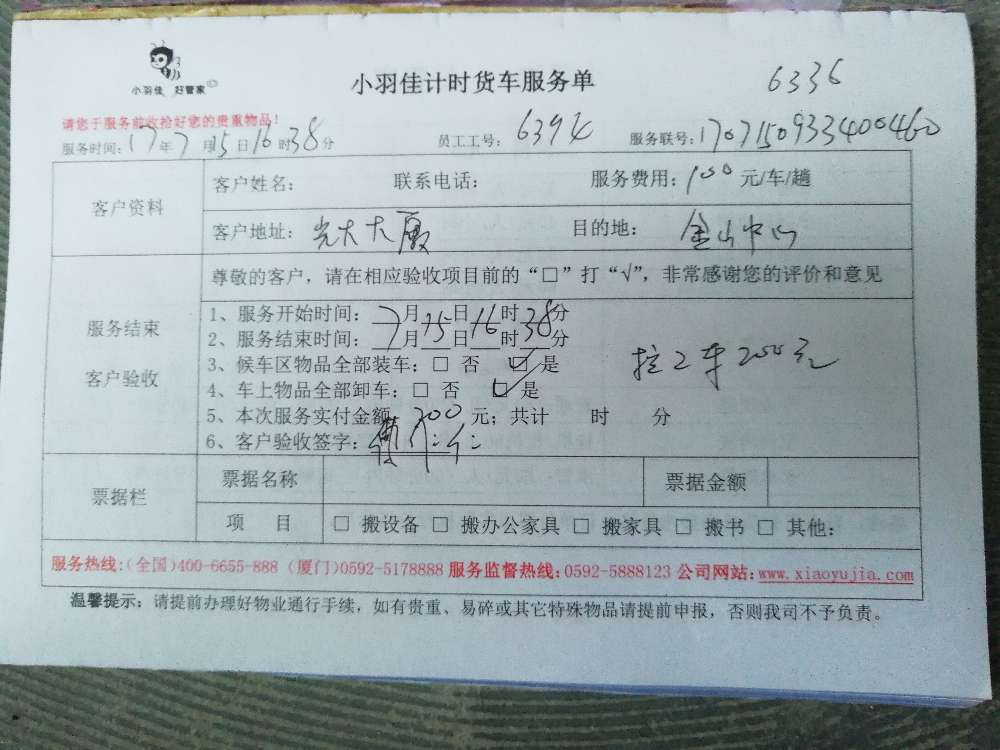 小羽佳 好管家
小羽佳计时货车服务单
6336
请您于服务前收拾好您的贵重物品！
服务时间：17年7月15日16时38分 员工工号： 服务联号：1707150933400460
客户资料
客户姓名： 联系电话： 服务费用：100元/车/趟
客户地址：光大大厦 目的地：金山中心
服务结束
客户验收
尊敬的客户，请在相应验收项目前的“□”打“√”，非常感谢您的评价和意见
1、服务开始时间：7月15日16时38分
2、服务结束时间： 月 日 时 分
3、候车区物品全部装车：□ 否 ☑ 是
4、车上物品全部卸车：□ 否 ☑ 是
拉2车200元
5、本次服务实付金额 200 元；共计 时 分
6、客户验收签字：
票据栏
票据名称 票据金额
项 目 □ 搬设备 □ 搬办公家具 □ 搬家具 □ 搬书 □ 其他：
服务热线：（全国）400-6655-888（厦门）0592-5178888 服务监督热线：0592-5888123 公司网站：www.xiaoyujia.com
温馨提示：请提前办理好物业通行手续，如有贵重、易碎或其它特殊物品请提前申报，否则我司不予负责。